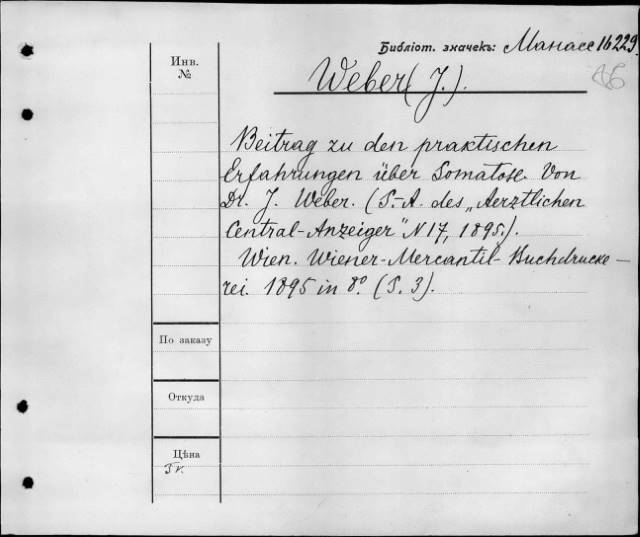 Библіот. значекъ: Манасс 16229
Инв.
№
Weber (J.).
Beitrag zu den praktischen
Erfahrungen über Somatose. Von
Dr. J. Weber. (S.-A. des „Aerztlichen
Central-Anzeiger" N 17, 1895.).
Wien. Wiener-Mercantil-Buchdrucke-
rei. 1895 in 8º. (S. 3).
По заказу
Откуда
Цѣна